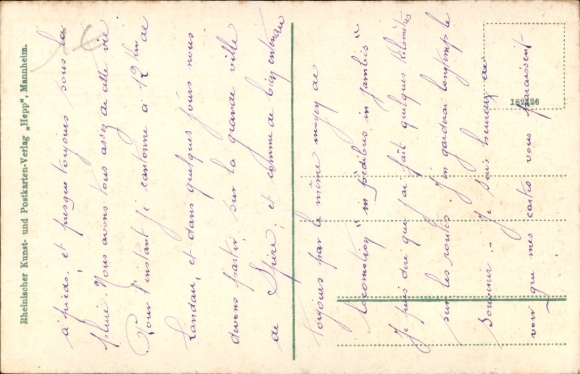 à pieds, et presque toujours sous la
pluie. Nous avons tous assez de cette vie
Pour l'instant je cantonne à 12 km de
Landau, et dans quelques jours nous
devons partir sur la grande ville
de Spire, et comme de bien entendu
toujours par le même moyen de
locomotion "in pedibus in jambis"
Je puis dire que j'ai fait quelques kilomètres
sur les routes. J'en garderai longtemps le
souvenir. Je suis heureux de
voir que mes cartes vous plaisent
Rheinischer Kunst- und Postkarten-Verlag „Hepp", Mannheim.